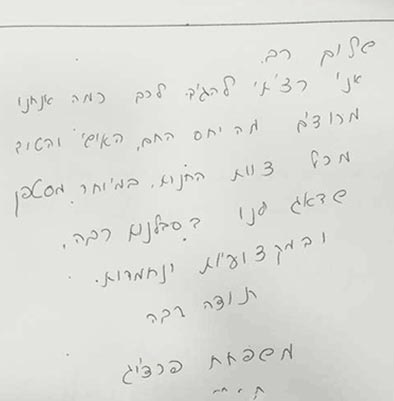 שלום רב.
אני רציתי להגיב לכם כמה אנחנו
מרוצים מהיחס החם, האישי והטוב
מכל צוות החנות. במיוחד מסטפן
שדאג לנו בסבלנות רבה,
ובמקצועיות ונחמדות.
תודה רבה
משפחת פרציג